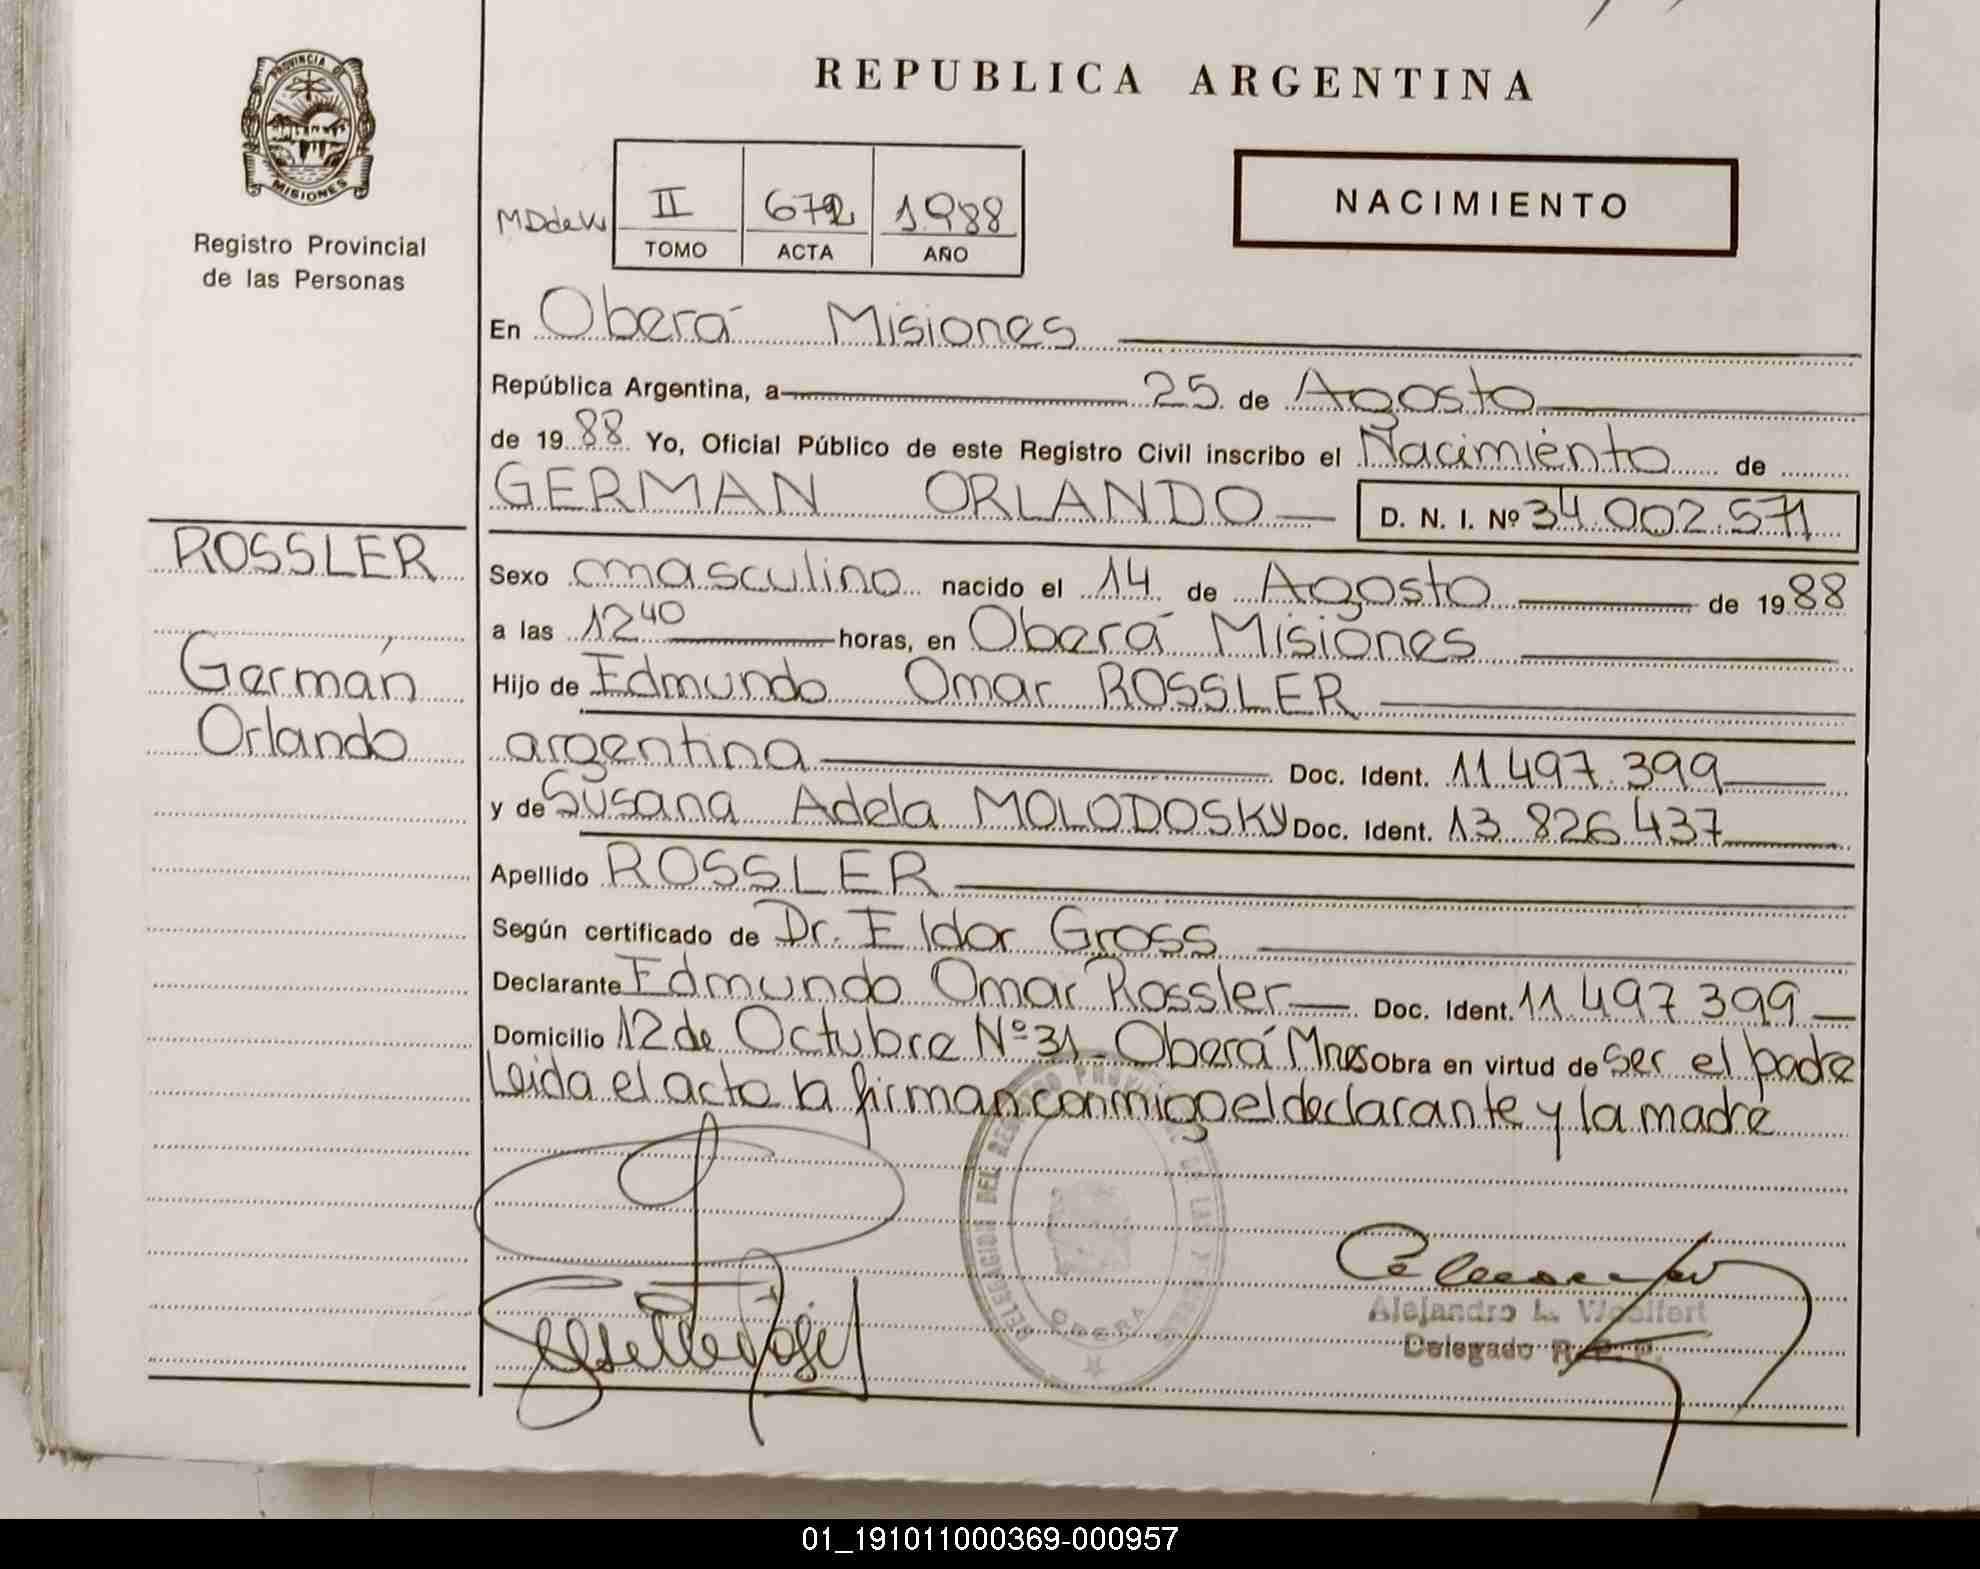 REPUBLICA ARGENTINA
PROVINCIA DE
MISIONES
Registro Provincial
de las Personas
NACIMIENTO
II 672 1988
TOMO ACTA AÑO
En Oberá Misiones
República Argentina, a 25 de Agosto
de 1988 Yo, Oficial Público de este Registro Civil inscribo el Nacimiento de
GERMAN ORLANDO D. N. I. Nº 34.002.571
ROSSLER
Germán
Orlando
Sexo masculino nacido el 14 de Agosto de 1988
a las 12 40 horas, en Oberá Misiones
Hijo de Edmundo Omar ROSSLER
argentina Doc. Ident. 11.497.399
y de Susana Adela MOLODOSKY Doc. Ident. 13.826.437
Apellido ROSSLER
Según certificado de Dr. Eldor Gross
Declarante Edmundo Omar Rossler Doc. Ident. 11.497.399
Domicilio 12 de Octubre Nº 31 - Oberá Mnes Obra en virtud de ser el padre
Leida el acta la firman conmigo el declarante y la madre
DELEGACION DEL REGISTRO PROVINCIAL DE LAS
OBERA
Alejandro L. Woelfert
Delegado R. P. P.
01_191011000369-000957